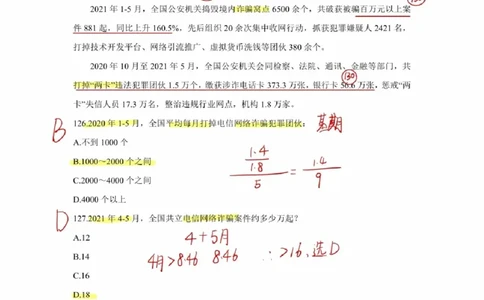 2021 年 1-5 月，全国公安机关捣毁境内诈骗窝点 6500 余个，共破获被骗百万元以上案
件 881 起，同比上升 160.5%，先后组织 20 余次集中收网行动，抓获犯罪嫌疑人 2421 名，
打掉技术开发平台、网络引流推广、虚拟货币洗钱等团伙 380 余个。
2020 年 10 月至 2021 年 5 月，全国公安机关会同检察、法院、通信、金融等部门，共
打掉“两卡”违法犯罪团伙 1.5 万个，缴获涉诈电话卡 373.3 万张，银行卡 56.6 万张，惩戒“两
卡”失信人员 17.3 万名，整治违规行业网点，机构 1.8 万家。
B 126.2020 年 1-5 月，全国平均每月打掉电信网络诈骗犯罪团伙： 基期
A.不到 1000 个
B.1000～2000 个之间
C.2000～4000 个之间
D.4000 个以上
1.4
1.8
5
= 1.4
9
D 127.2021 年 4-5 月，全国共立电信网络诈骗案件约多少万起？
A.12
B.14
C.16
D.18
4+5月
4月>8.46 8.46 ∴ >16,选D